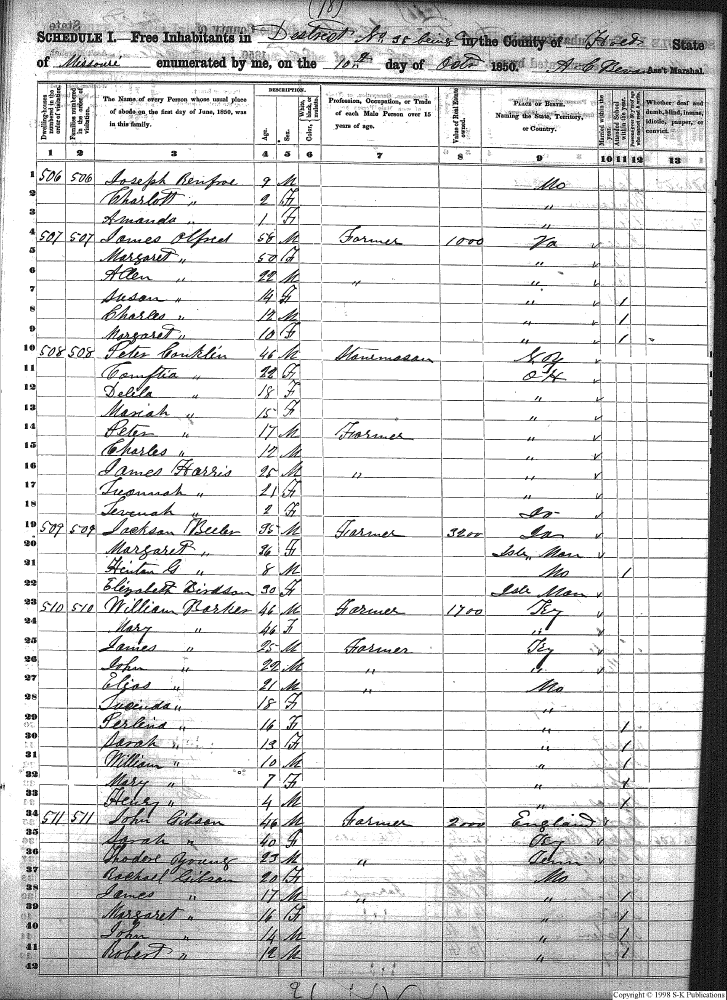 (18)
SCHEDULE I.—Free Inhabitants in District No 38 being in the County of State
of Missouri enumerated by me, on the 10th day of Octr 1850. A C Ass't Marshal.
Dwelling-houses numbered in the order of visitation. Families numbered in the order of visitation. The Name of every Person whose usual place of abode on the first day of June, 1850, was in this family. DESCRIPTION. Age. Sex. Color, White, black, or mulatto. Profession, Occupation, or Trade of each Male Person over 15 years of age. Value of Real Estate owned. PLACE OF BIRTH. Naming the State, Territory, or Country. Married within the year. Attended School within the year. Whether deaf and dumb, blind, insane, idiotic, pauper, or convict.
1 2 3 4 5 6 7 8 9 10 11 12 13
1 506 506 Joseph Renfroe 9 M Mo
2 Charlott " 2 F "
3 Amanda " 1 F "
4 507 507 James Olfred 58 M Farmer 1000 Va
5 Margaret " 50 F "
6 Allen " 22 M " "
7 Susan " 14 F " 1
8 Charles " 12 M " 1
9 Margaret " 10 F " 1
10 508 508 Peter Conklin 46 M Stonemason N.Y
11 22 F O-H
12 Delila " 18 F "
13 Mariah " 15 F "
14 Peter " 17 M Farmer "
15 Charles " 12 M "
16 James Harris 25 M " "
17 " 21 F "
18 " 2 F
19 509 509 Jackson Beeler 35 M Farmer 3200
20 Margaret " 36 F Isle " Man
21 Hinton G " 8 M Mo 1
22 Elizabeth Birdson 30 F Isle Man
23 510 510 William Barker 46 M Farmer 1700 Ky
24 Mary " 46 F "
25 James " 25 M Farmer Ky
26 John " 22 M " "
27 Elias " 21 M " Mo
28 Lucinda " 18 F "
29 Perlina " 16 F " 1
30 Sarah " 12 F " 1
31 William " 10 M " 1
32 Mary " 7 F " 1
33 Henry " 4 M " 1
34 511 511 John Gibson 46 M Farmer 2000 England
35 Sarah " 40 F Ky
36 Thodore Young 23 M " Tenn
37 Rachael Gibson 20 F Mo
38 James " 17 M " " 1
39 Margaret " 16 F " 1
40 John " 14 M " 1
41 Robert " 12 M " 1
42
Copyright © 1998 S-K Publications